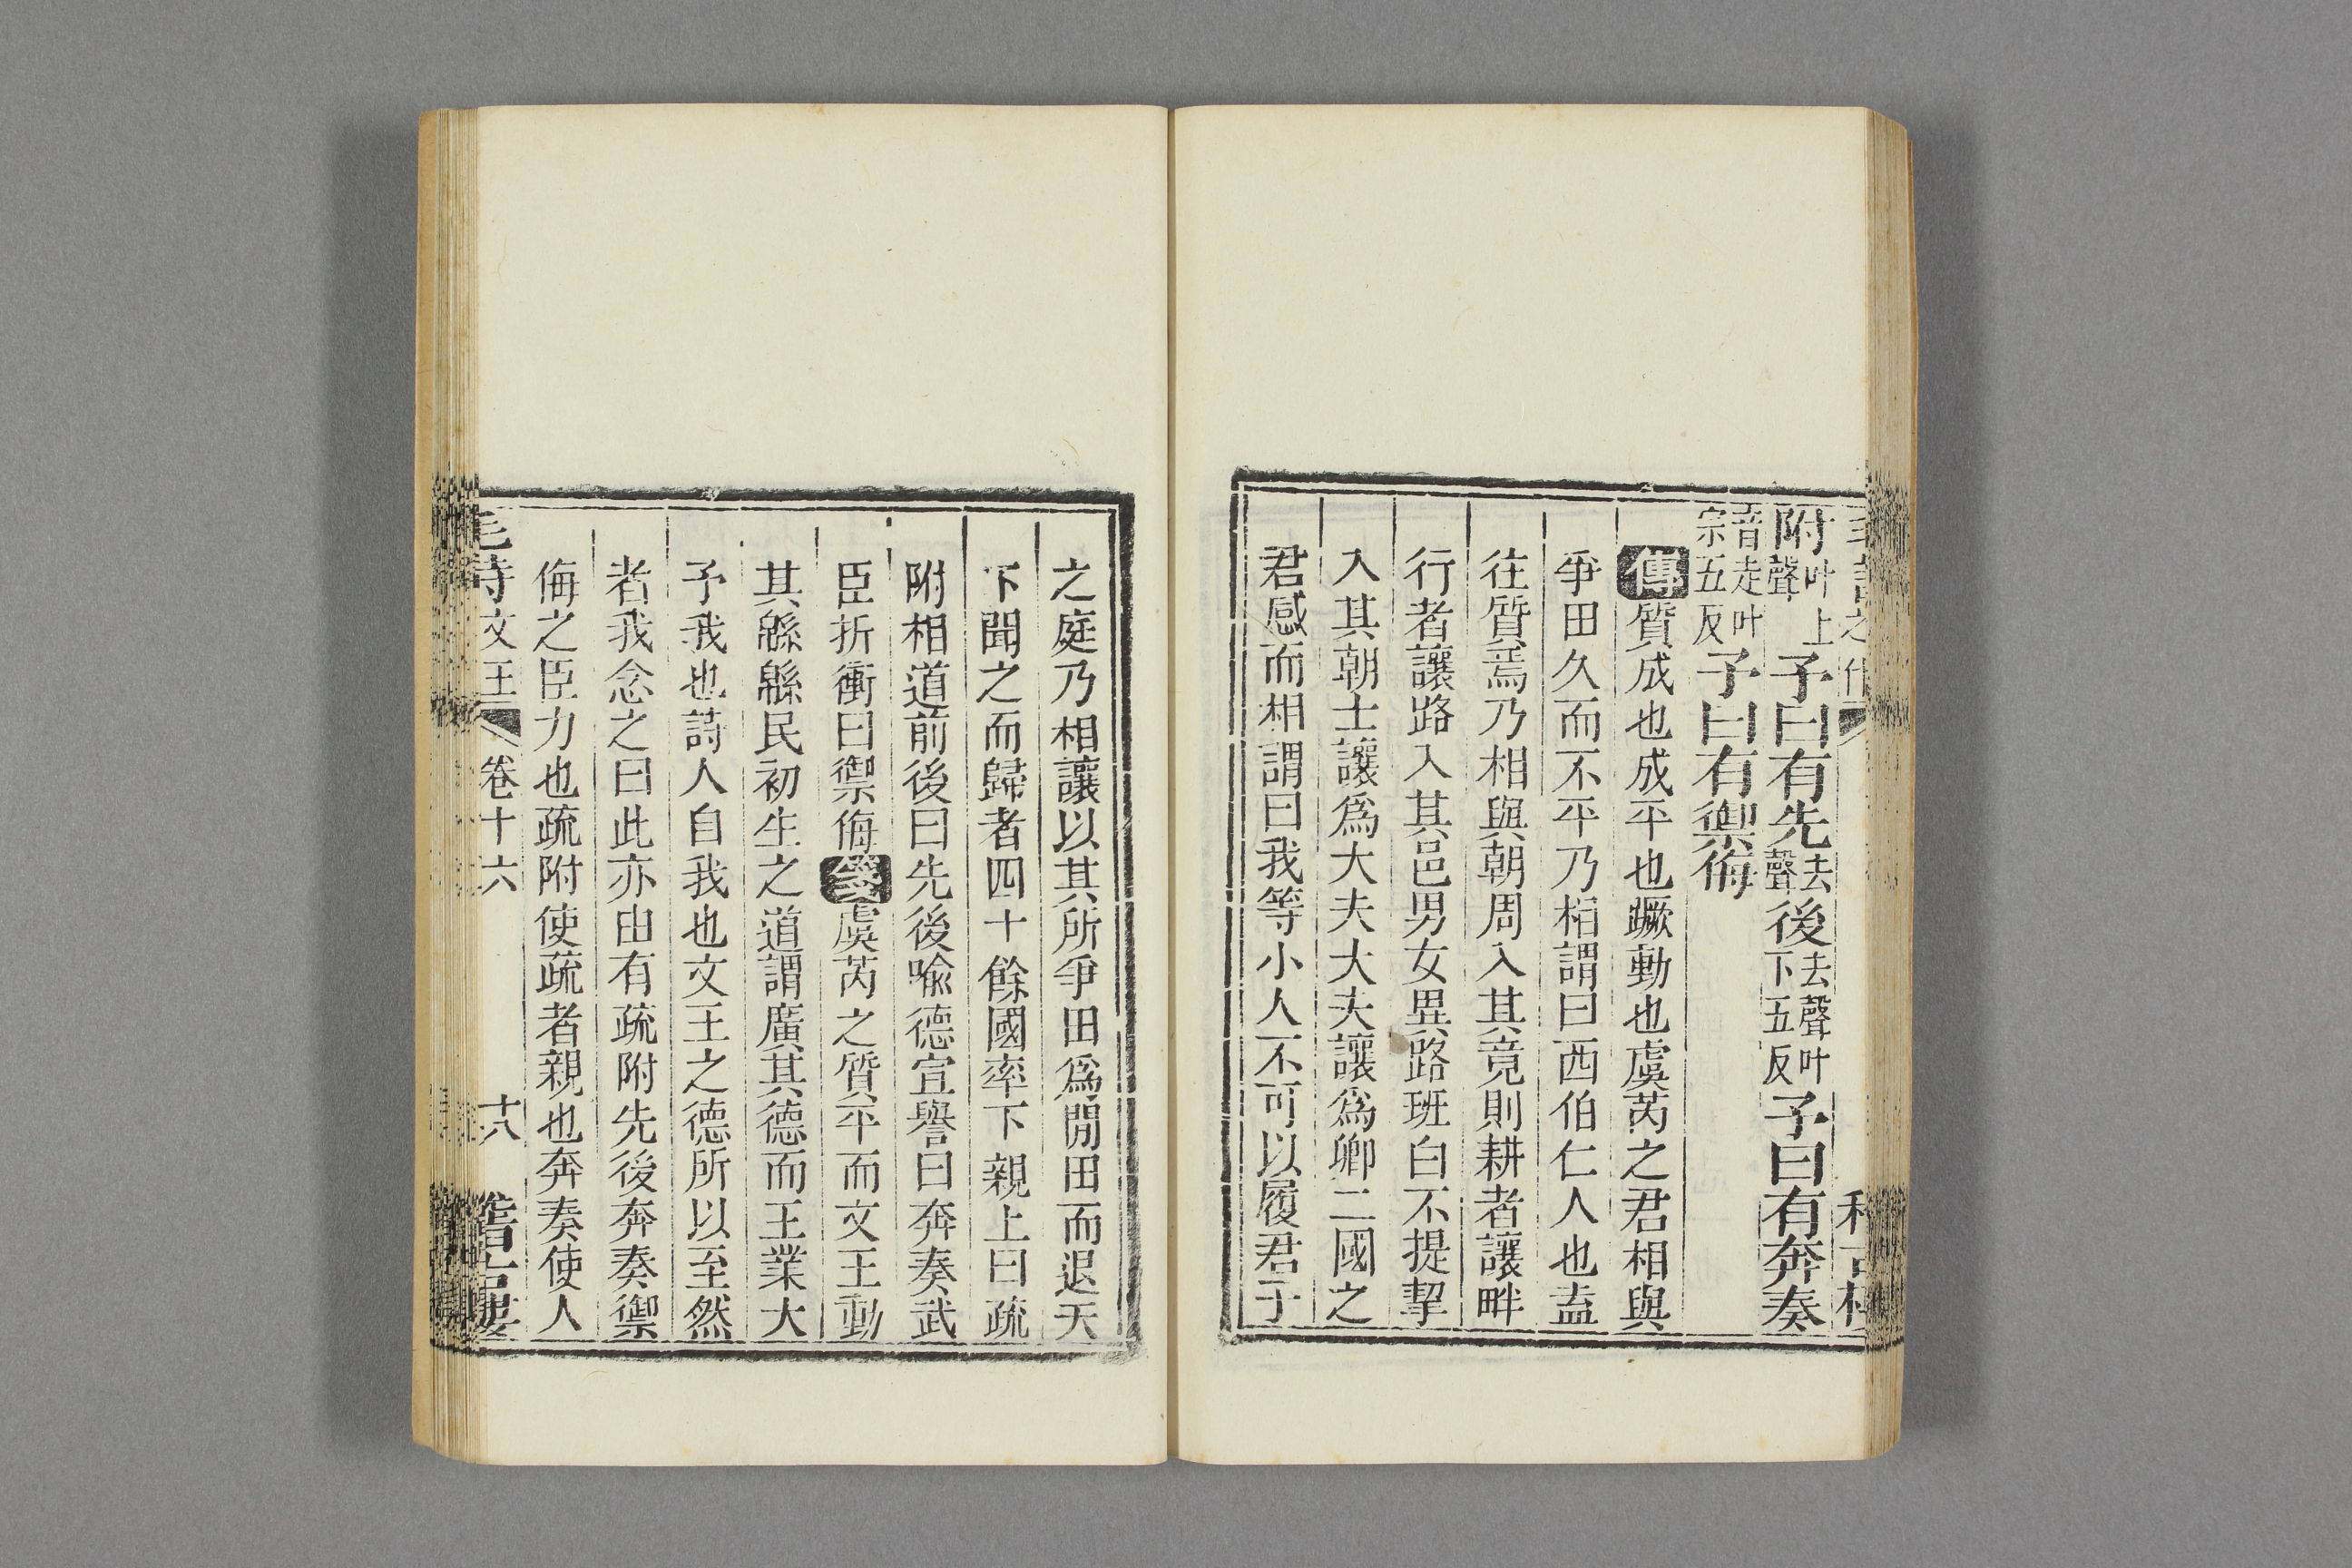 附叶上聲予曰有先去聲後去聲叶下五反予曰有奔奏
音走叶宗五反予曰有禦侮
傳質成也成平也蹶動也虞芮之君相與
爭田久而不平乃相謂曰西伯仁人也盍
往質焉乃相與朝周入其竟則耕者讓畔
行者讓路入其邑男女異路班白不提挈
入其朝士讓爲大夫大夫讓爲卿二國之
君感而相謂曰我等小人不可以履君子
之庭乃相讓以其所爭田爲閒田而退天
下聞之而歸者四十餘國率下親上曰疏
附相道前後曰先後喻德宣譽曰奔奏武
臣折衝曰禦侮箋虞芮之質平而文王動
其緜緜民初生之道謂廣其德而王業大
予我也詩人自我也文王之德所以至然
者我念之曰此亦由有疏附先後奔奏禦
侮之臣力也疏附使疏者親也奔奏使人
毛詩文王 卷十六 十八 稽古樓